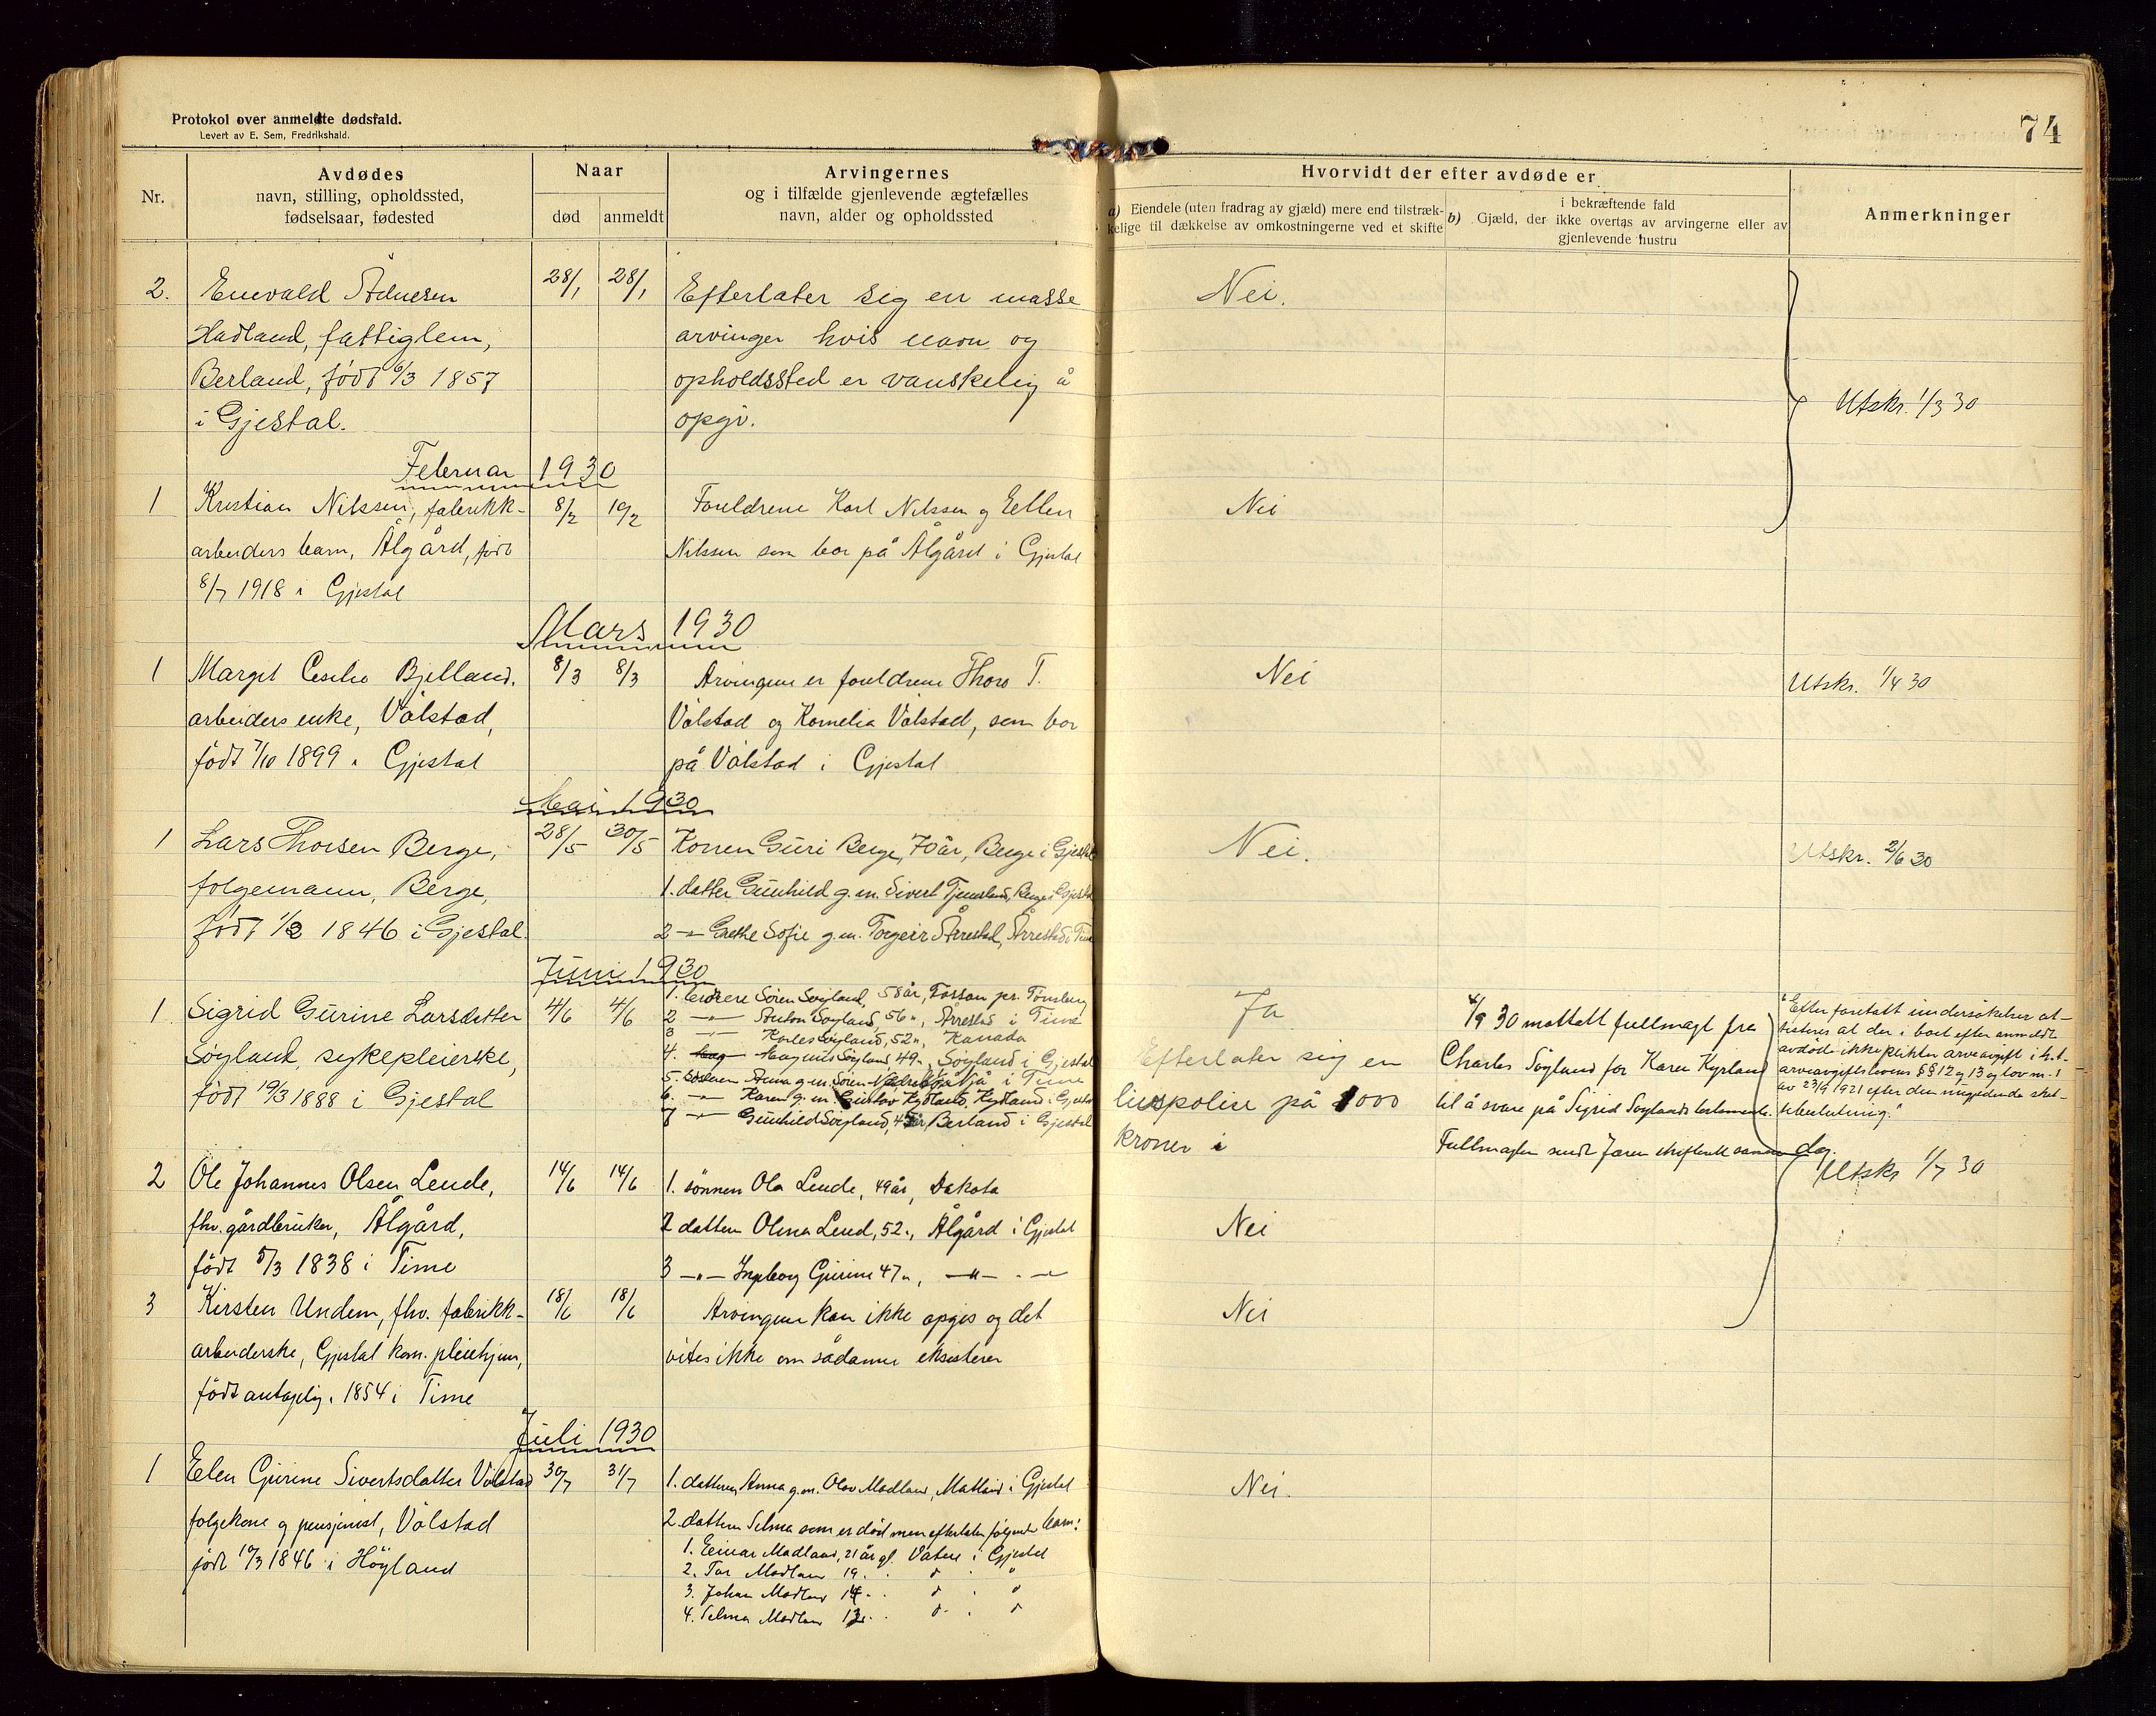 Protokol over anmeldte dødsfald.
Levert av E. Sem, Fredrikshald.
74
Nr.
Avdødes
navn, stilling, opholdssted,
fødselsaar, fødested
Naar
død
anmeldt
Arvingernes
og i tilfælde gjenlevende ægtefælles
navn, alder og opholdssted
Hvorvidt der efter avdøde er
a) Eiendele (uten fradrag av gjæld) mere end tilstræk-
kelige til dækkelse av omkostningerne ved et skifte
b) Gjæld, der
i bekræftende fald
ikke overtas av arvingerne eller av
gjenlevende hustru
Anmerkninger
2.
Enevald Ådnesen
Hadland, fattiglem,
Berland, født 6/3 1857
i Gjestal.
28/1
28/1
Efterlater sig en masse
arvinger hvis navn og
opholdssted er vanskelig å
opgi.
Nei.
Utskr. 1/3 30
Februar 1930
1
Kristian Nilssen, fabrikk-
arbeiders barn, Ålgård, født
8/7 1918 i Gjestal
8/2
19/2
Foreldrene Karl Nilssen og Ellen
Nilssen som bor på Ålgård i Gjestal
Nei
Mars 1930
1
Margit Cecilie Bjelland.
arbeiders enke, Vålstad,
født 7/10 1899 i Gjestal
8/3
8/3
Arvingene er foreldrene Thore T.
Vålstad og Kornelia Vålstad, som bor
på Vålstad i Gjestal
Nei
Utskr. 1/4 30
Mai 1930
1
Lars Thorsen Berge,
folgemann, Berge,
født 1/2 1846 i Gjestal.
28/5
30/5
Konen Guri Berge, 70 år, Berge i Gjestal
1. datter Gunhild g.m. Sivert Tjemsland, Berge i Gjestal
2 —"— Grethe Sofie g.m. Torgeir Årrestad, Årrestad i Time
Nei.
Utskr. 2/6 30
Juni 1930
1
Sigrid Gurine Larsdatter
Søyland, sykepleierske,
født 19/3 1888 i Gjestal
4/6
4/6
1. brødrene Søren Søyland, 58 år, Fossan pr. Tønsberg
2 —"— Anton Søyland, 56 ", Årrestad i Time
3 —"— Karles Søyland, 52 ", Kanada
4. Magnus Søyland 49 ", Søyland i Gjestal
5. søsteren Anna g.m. Søren Njå i Time
6. —"— Karen g.m. Gustav Kydland, Kydland i Gjestal
7 —"— Gunhild Søyland, 45 år, Berland i Gjestal
Ja
Efterlater sig en
livspolise på 1000
kroner i
4/9 30 mottatt fullmagt fra
Charles Søyland for Karen Kyrland
til å svare på Sigrid Søylands testamente.
Fullmagten sendt Jæren skifterett samme dag.
"Efter foretatt undersøkelser at-
testeres at der i boet efter anmeldte
avdøde ikke plikter arveavgift i h.t.
arveavgiftslovens §§ 12 og 13 og lov nr. 1
av 23/9 1921 efter den nugjeldende skat-
tebeslutning."
Utskr 1/7 30
2
Ole Johannes Olsen Lende,
fhv. gårdbruker, Ålgård,
født 5/3 1838 i Time
14/6
14/6
1. sønnen Ola Lende, 49 år, Dakota
2 datteren Olena Lend, 52 ", Ålgård i Gjestal
3 —"— Ingeborg Gurine 47 ", —"— " —
Nei
3
Kirsten Undem, fhv. fabrikk-
arbeiderske, Gjestal kom. pleiehjem,
født antagelig i 1854 i Time
18/6
18/6
Arvingene kan ikke opgis og det
vites ikke om sådanne eksisterer
Nei
Juli 1930
1
Elen Gurine Sivertsdatter Vålstad
folgekone og pensjonist, Vålstad
født 10/3 1846 i Høyland
30/7
31/7
1. datteren Anna g.m. Olav Madland, Matland i Gjestal
2. datteren Selma som er død men efterlater følgende barn:
1. Einar Madland, 21 år gl. Vatne i Gjestal
2. Tor Madland 19 " " " "
3. Johan Madland 14 " " " "
4. Selma Madland 12 " " " "
Nei.